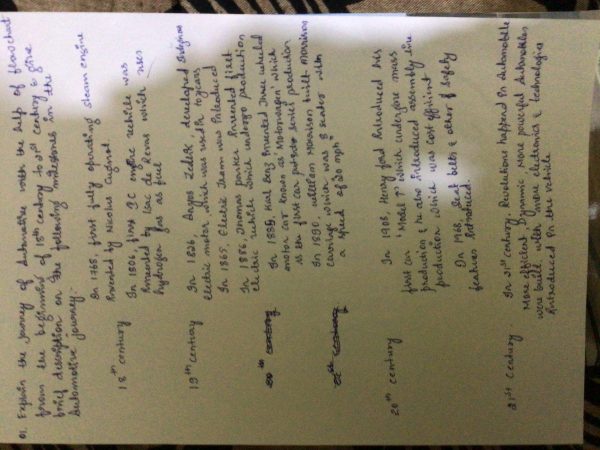 01. Explain the journey of Automotive with the help of flowchart
from the beginning of 18th century to 21st century & give
brief description on the following milestones in the
Automotive journey.
18th century
In 1768, first fully operating steam engine
Invented by Nicolus Cugnot.
In 1806, first IC engine vehicle was
Invented by Isac de Revas which uses
hydrogen gas as fuel
19th century
In 1826, Anyos Jedlik, developed
electric motor, which was used to years
In 1865, Electric was Introduced
In 1886, Thomas parker Invented first
electric vehicle which undergo production
In 1885, Karl Benz Invented Three wheeled
motor car known as 'Motorwagen' which
is the first car put into series production
In 1890, William Morrison built Morrison
carriage which was 8 seater with
a speed of 20 mph"
20th century
In 1908, Henry ford Introduced his
first car 'Model T' which undergone mass
production & he also Introduced assembly line
production which was cost efficient
In 1968, Seat belts & other of safety
features Introduced.
21st century
In 21st century Revolutions happend in Automobile
More efficient Dynamic, more powerful Automobiles
were built with more electronics & technologies
Introduced in the vehicle